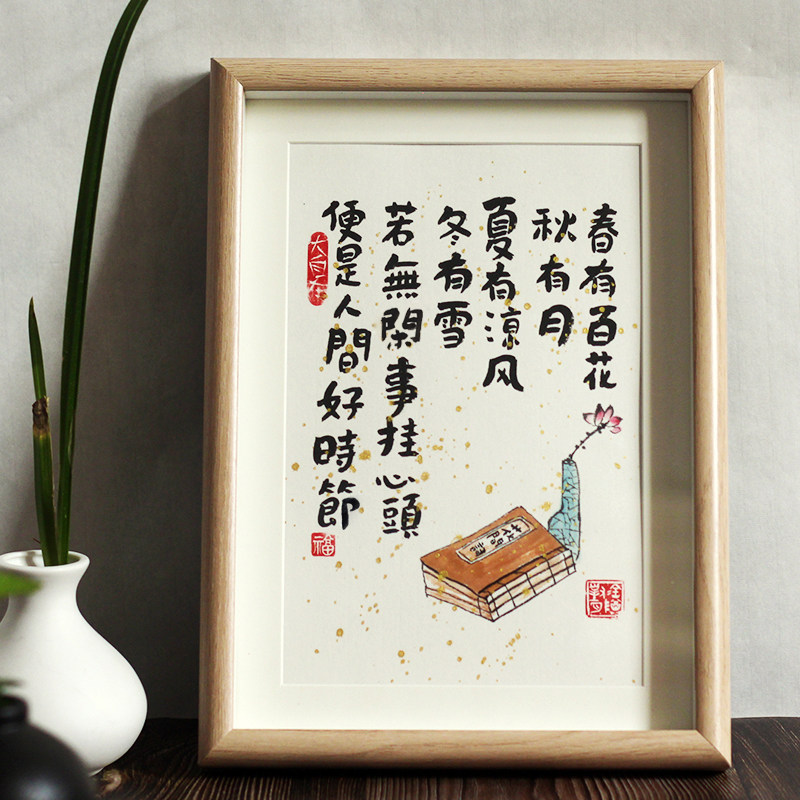 春有百花
秋有月
夏有涼风
冬有雪
若無閑事挂心頭
便是人間好時節
大自在
福